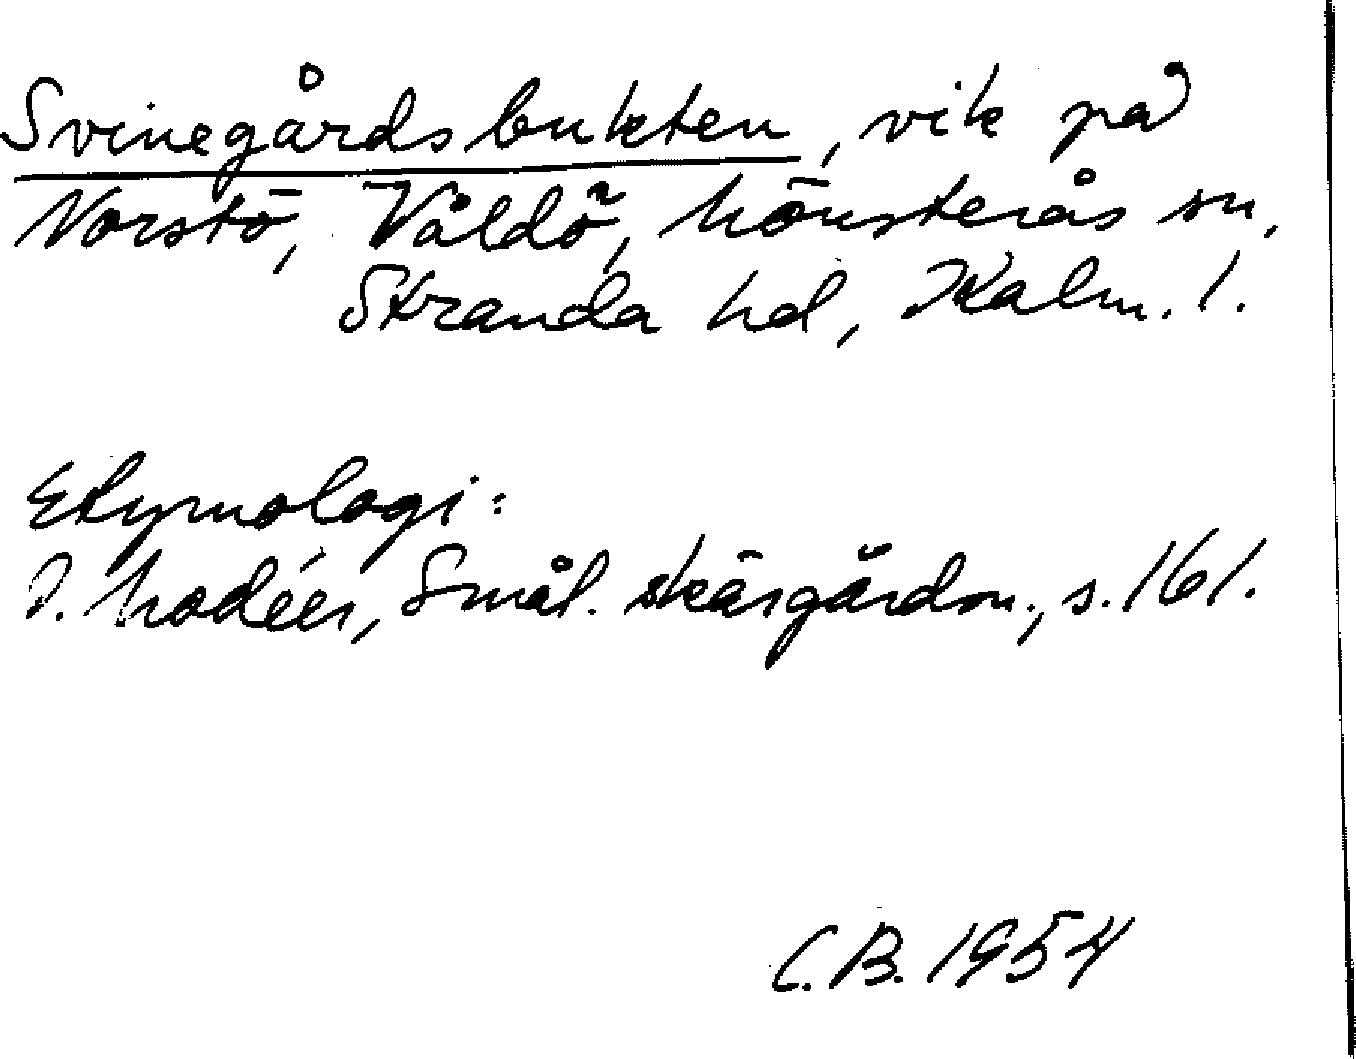 Svinegårdsbukten, vik på
Norstö, Våldö, Mönsterås sn,
Stranda hd, Kalm. l.
Etymologi:
I. Modéer, Smål. skärgårdsn., s. 161.
C.B. 1954